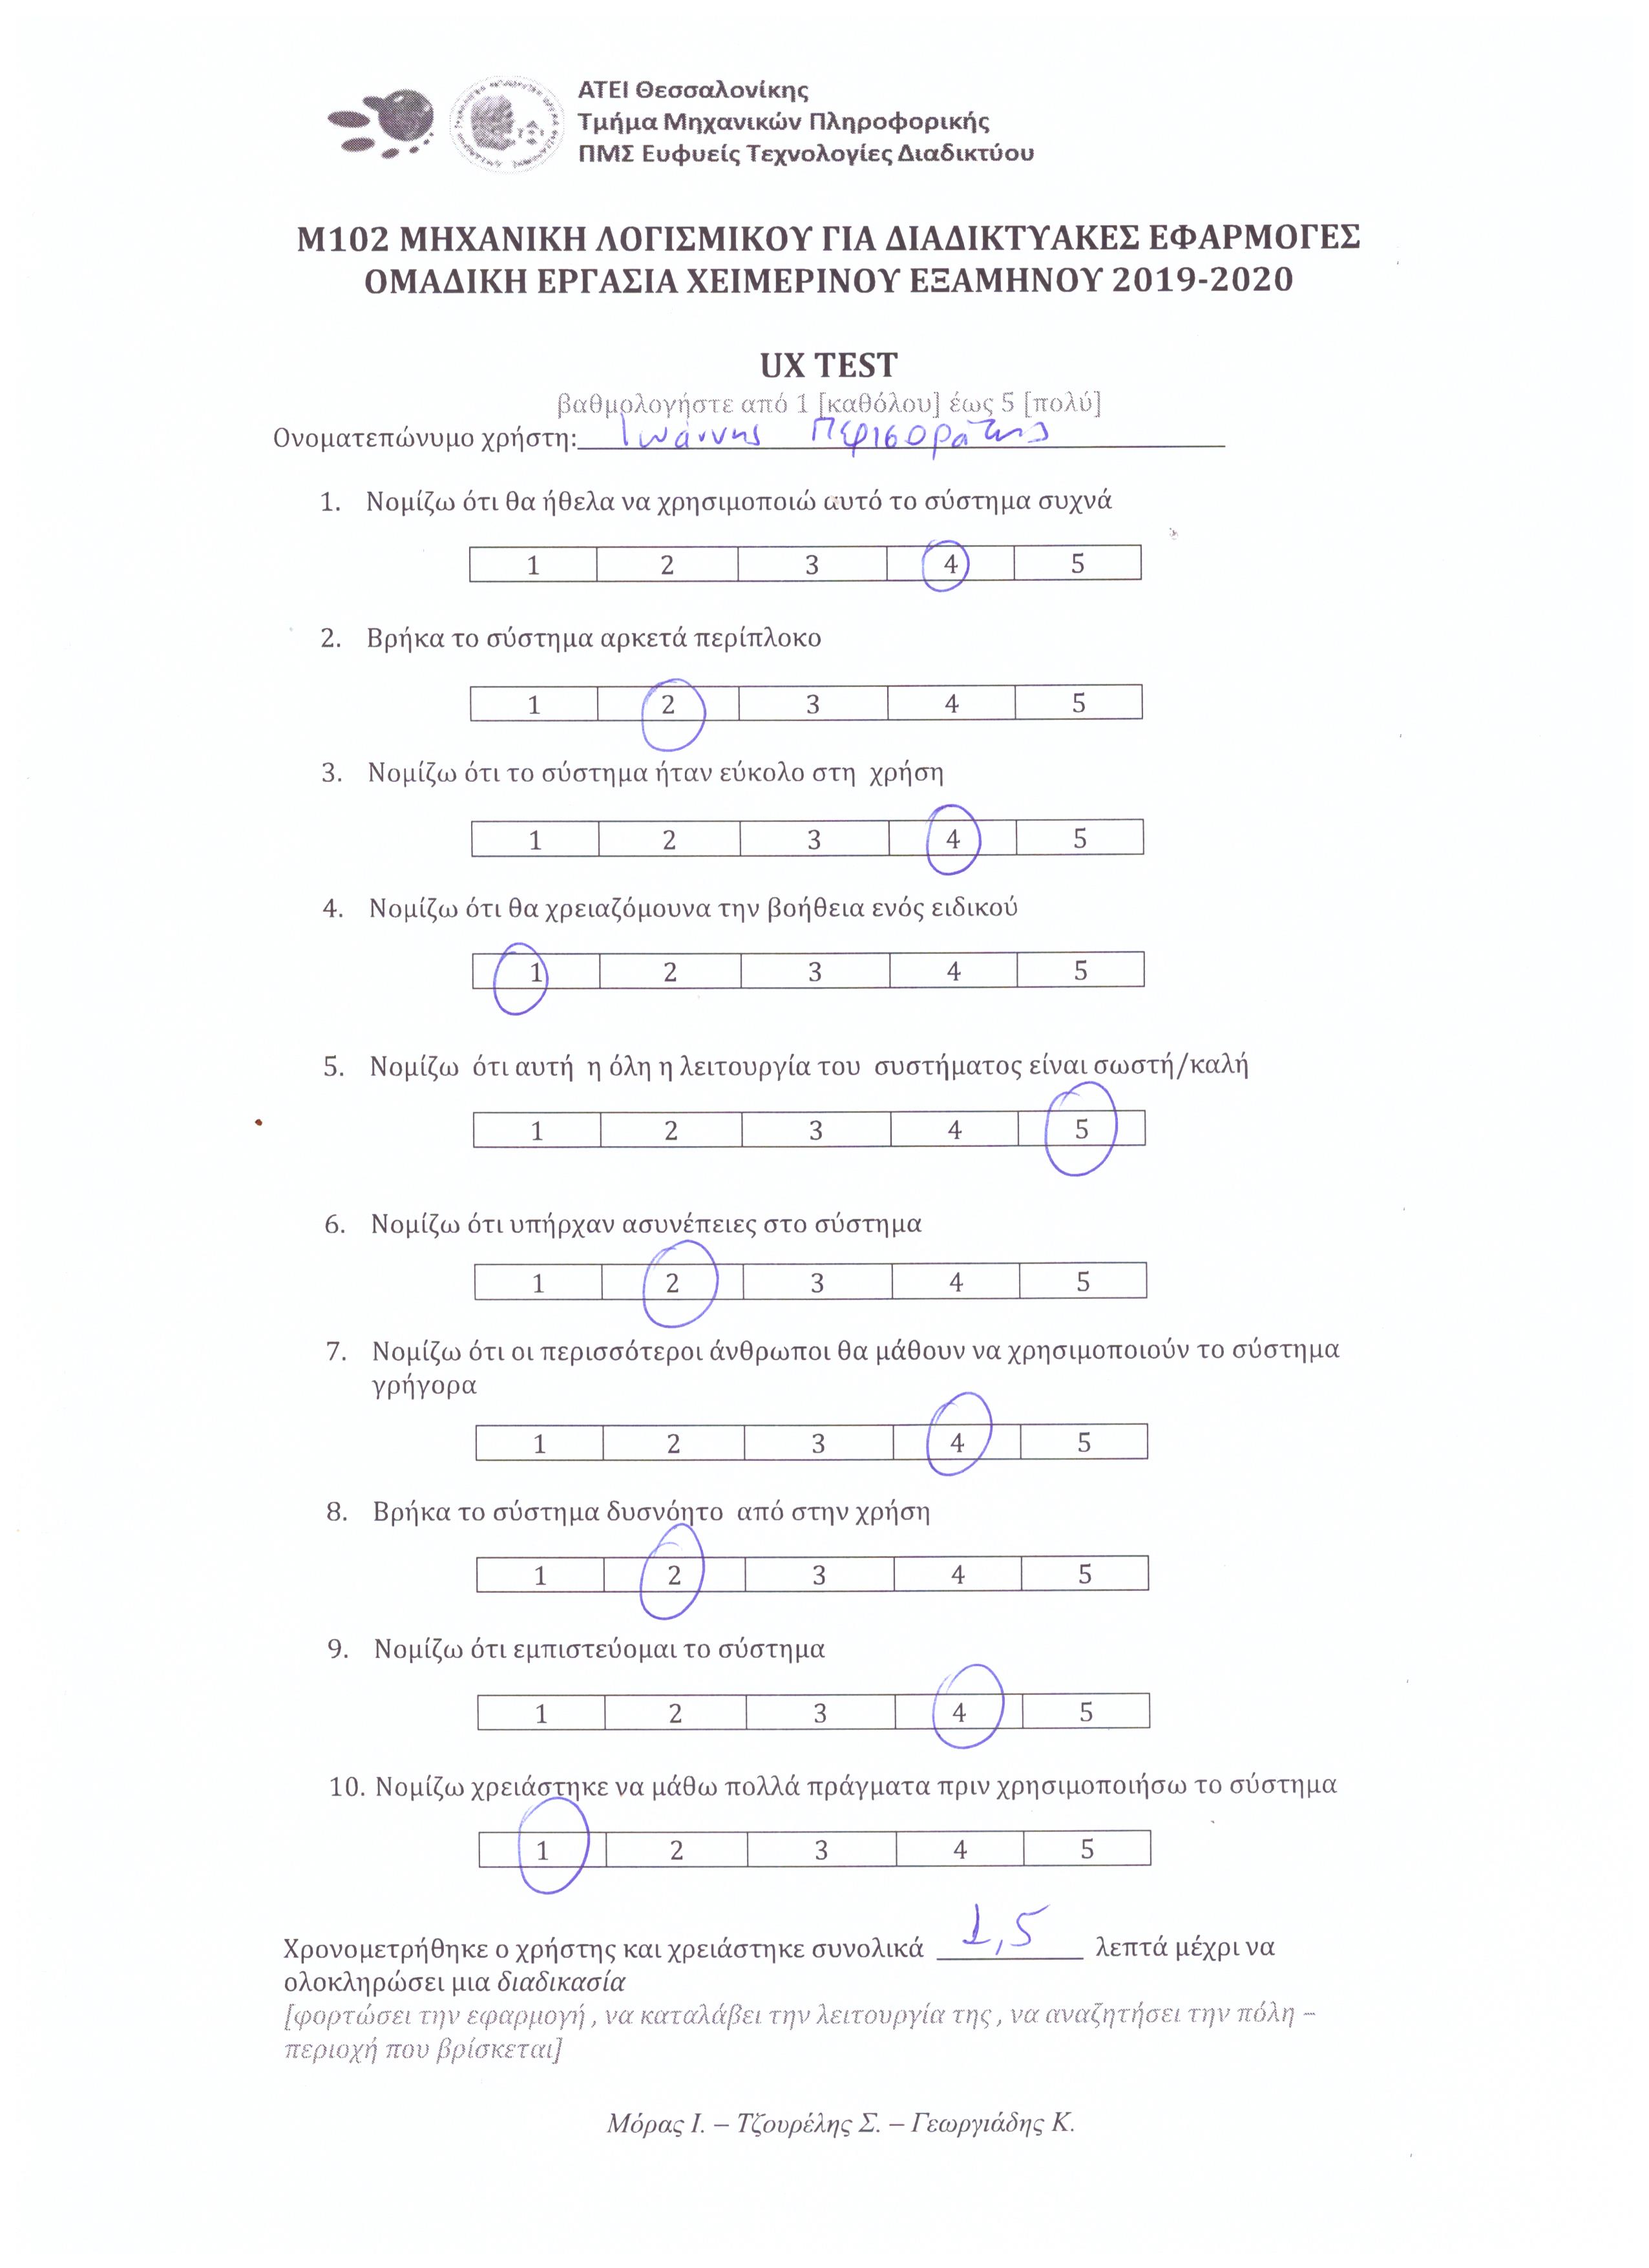 ΑΤΕΙ Θεσσαλονίκης
Τμήμα Μηχανικών Πληροφορικής
ΠΜΣ Ευφυείς Τεχνολογίες Διαδικτύου
Μ102 ΜΗΧΑΝΙΚΗ ΛΟΓΙΣΜΙΚΟΥ ΓΙΑ ΔΙΑΔΙΚΤΥΑΚΕΣ ΕΦΑΡΜΟΓΕΣ
ΟΜΑΔΙΚΗ ΕΡΓΑΣΙΑ ΧΕΙΜΕΡΙΝΟΥ ΕΞΑΜΗΝΟΥ 2019-2020
UX TEST
βαθμολογήστε από 1 [καθόλου] έως 5 [πολύ]
Ονοματεπώνυμο χρήστη: Ιωάννης Περισοράτης
1. Νομίζω ότι θα ήθελα να χρησιμοποιώ αυτό το σύστημα συχνά
1 2 3 4 5
2. Βρήκα το σύστημα αρκετά περίπλοκο
1 2 3 4 5
3. Νομίζω ότι το σύστημα ήταν εύκολο στη χρήση
1 2 3 4 5
4. Νομίζω ότι θα χρειαζόμουνα την βοήθεια ενός ειδικού
1 2 3 4 5
5. Νομίζω ότι αυτή η όλη η λειτουργία του συστήματος είναι σωστή/καλή
1 2 3 4 5
6. Νομίζω ότι υπήρχαν ασυνέπειες στο σύστημα
1 2 3 4 5
7. Νομίζω ότι οι περισσότεροι άνθρωποι θα μάθουν να χρησιμοποιούν το σύστημα
γρήγορα
1 2 3 4 5
8. Βρήκα το σύστημα δυσνόητο από στην χρήση
1 2 3 4 5
9. Νομίζω ότι εμπιστεύομαι το σύστημα
1 2 3 4 5
10. Νομίζω χρειάστηκε να μάθω πολλά πράγματα πριν χρησιμοποιήσω το σύστημα
1 2 3 4 5
Χρονομετρήθηκε ο χρήστης και χρειάστηκε συνολικά 1,5 λεπτά μέχρι να
ολοκληρώσει μια διαδικασία
[φορτώσει την εφαρμογή , να καταλάβει την λειτουργία της , να αναζητήσει την πόλη –
περιοχή που βρίσκεται]
Μόρας Ι. – Τζουρέλης Σ. – Γεωργιάδης Κ.